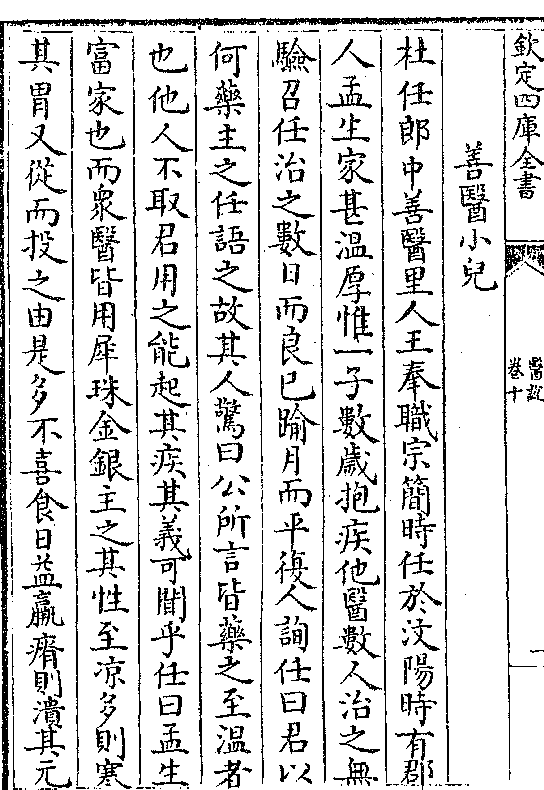 欽定四庫全書
醫說
卷十
一
善醫小兒
杜任郎中善醫里人王奉職宗簡時任於汶陽時有郡
人孟生家甚溫厚惟一子數歲抱疾他醫數人治之無
驗召任治之數日而良已踰月而平復人詢任曰君以
何藥主之任語之故其人驚曰公所言皆藥之至溫者
也他人不取君用之能起其疾其義可聞乎任曰孟生
富家也而衆醫皆用犀珠金銀主之其性至凉多則寒
其胃又從而投之由是多不喜食日益羸瘠則潰其元